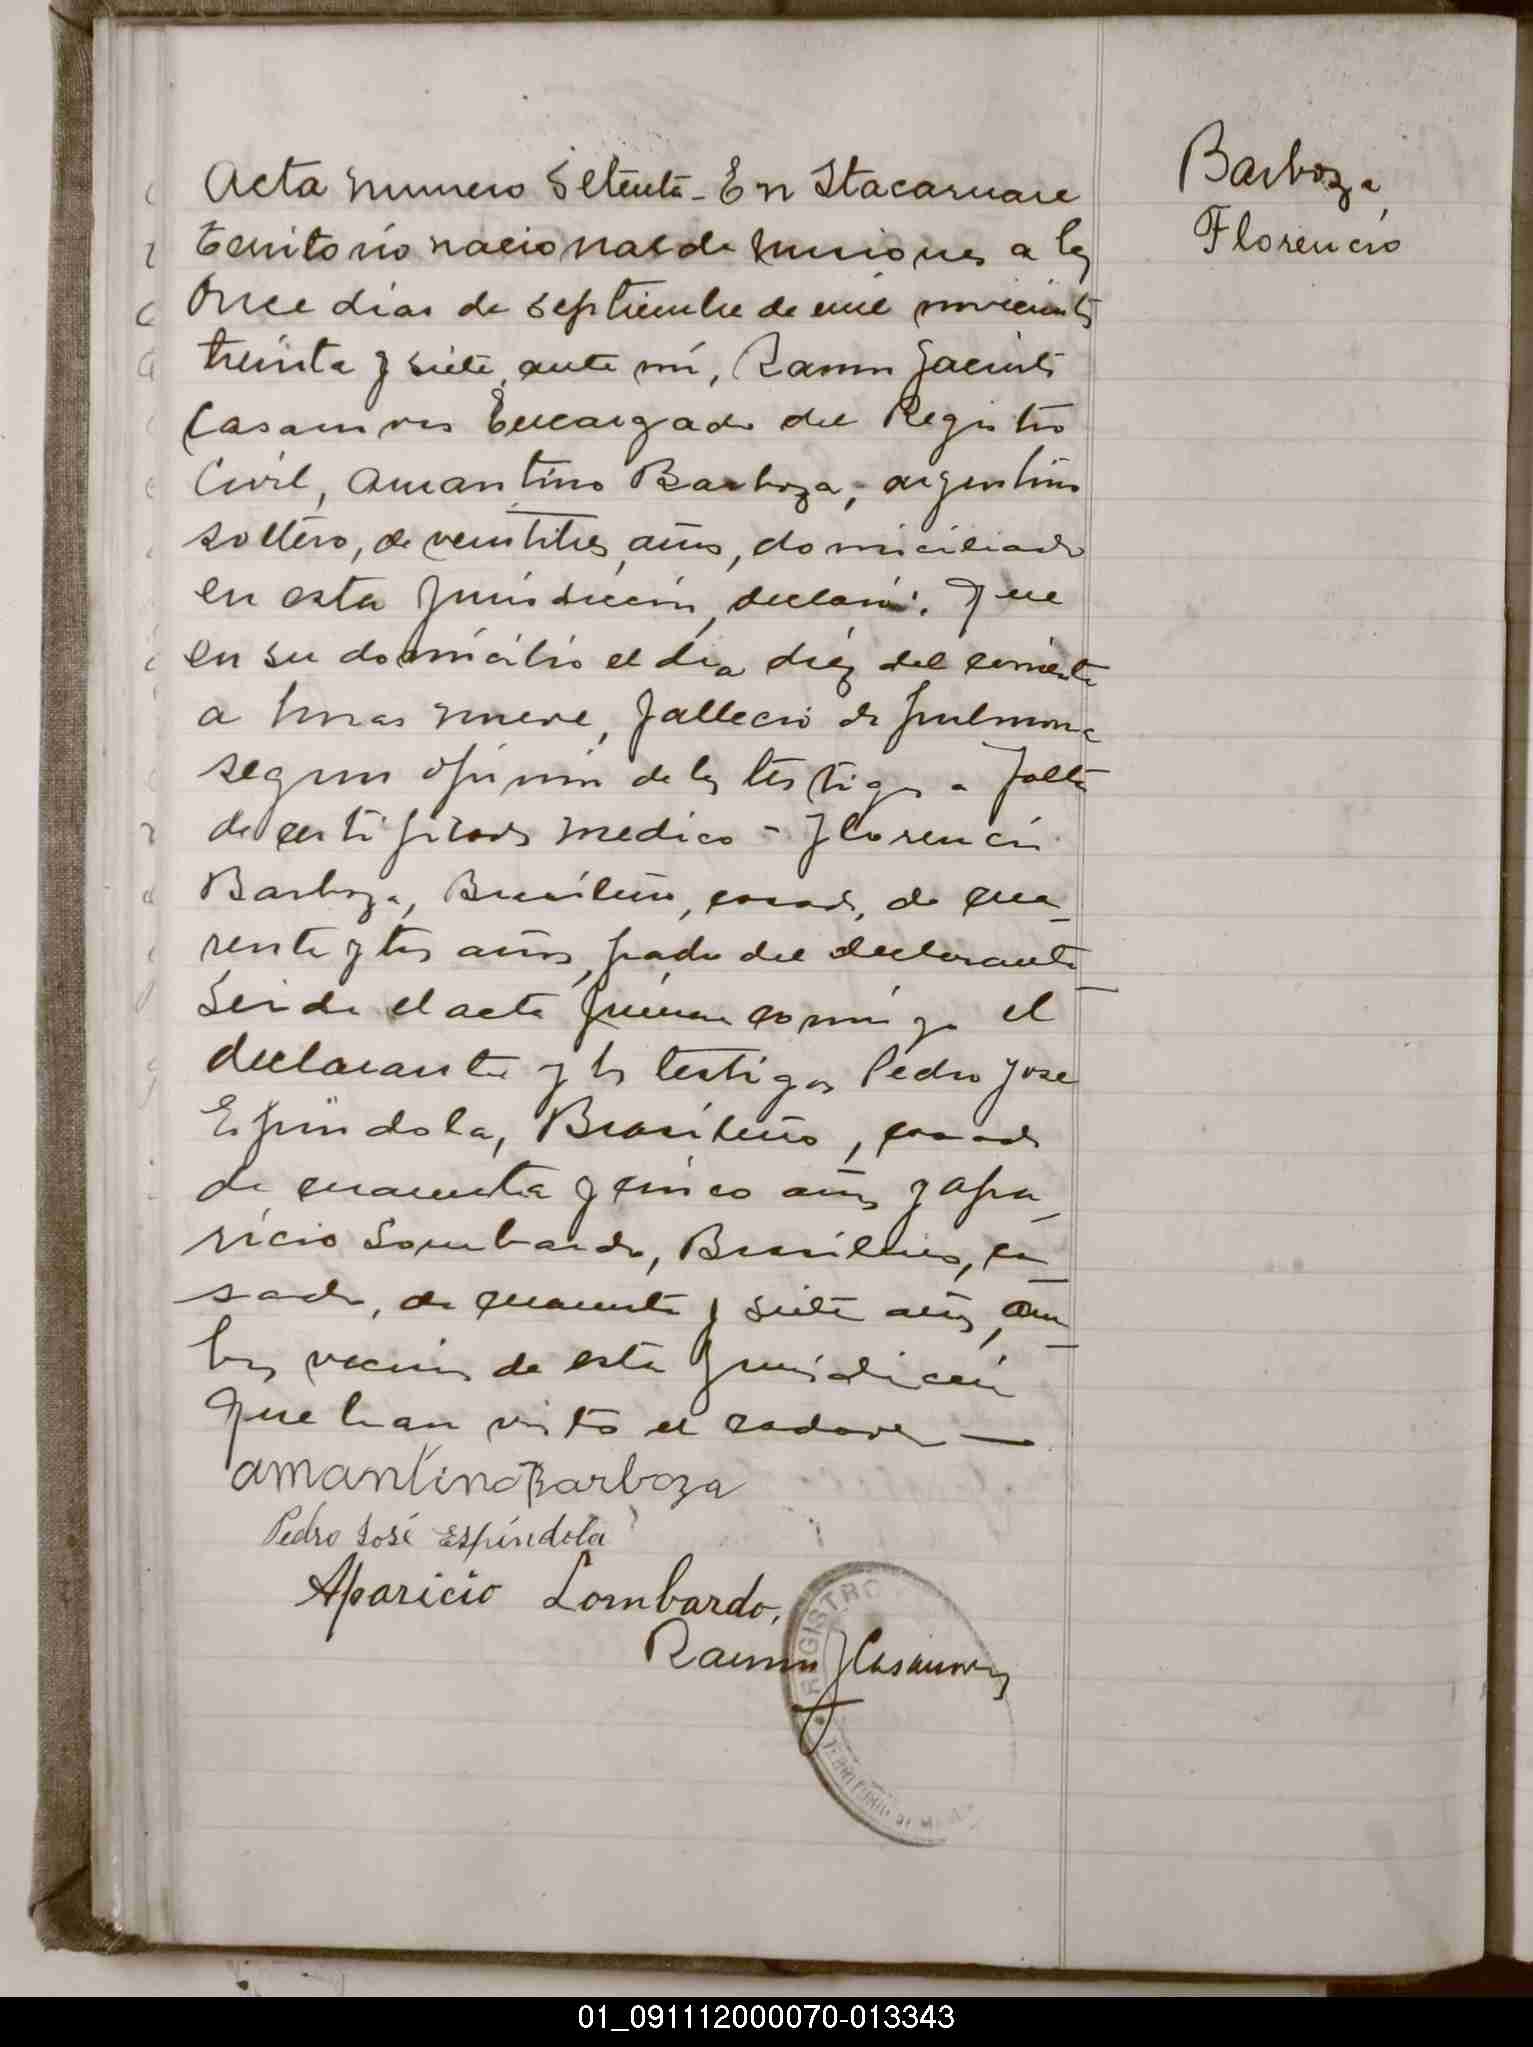 Barboza,
Florencio
Acta numero Setenta - En Itacaruare
territorio nacional de misiones a los
once dias de septiembre de mil novecientos
treinta y siete, ante mí, Ramon Jacinto
Casanovas Encargado del Registro
Civil, Amantino Barboza, argentino
soltero, de veintitres años, domiciliado
en esta jurisdiccion, declaró: Que
en su domicilio el dia diez del corriente
a horas nueve, fallecio de pulmonia
segun opinion de los testigos a falta
de certificado medico - Florencio
Barboza, Brasileño, casado, de cua_
renta y tres años, padre del declarante_
Leida el acta firman conmigo el
declarante y los testigos Pedro Jose
Espindola, Brasileño, casado
de cuarenta y cinco años y Apa_
ricio Lombardo, Brasileño, ca_
sado, de cuarenta y siete años, am_
bos vecinos de esta jurisdiccion
que han visto el cadaver —
Amantino Barboza
Pedro José Espíndola
Aparicio Lombardo,
Ramon J Casanovas
REGISTRO
01_091112000070-013343